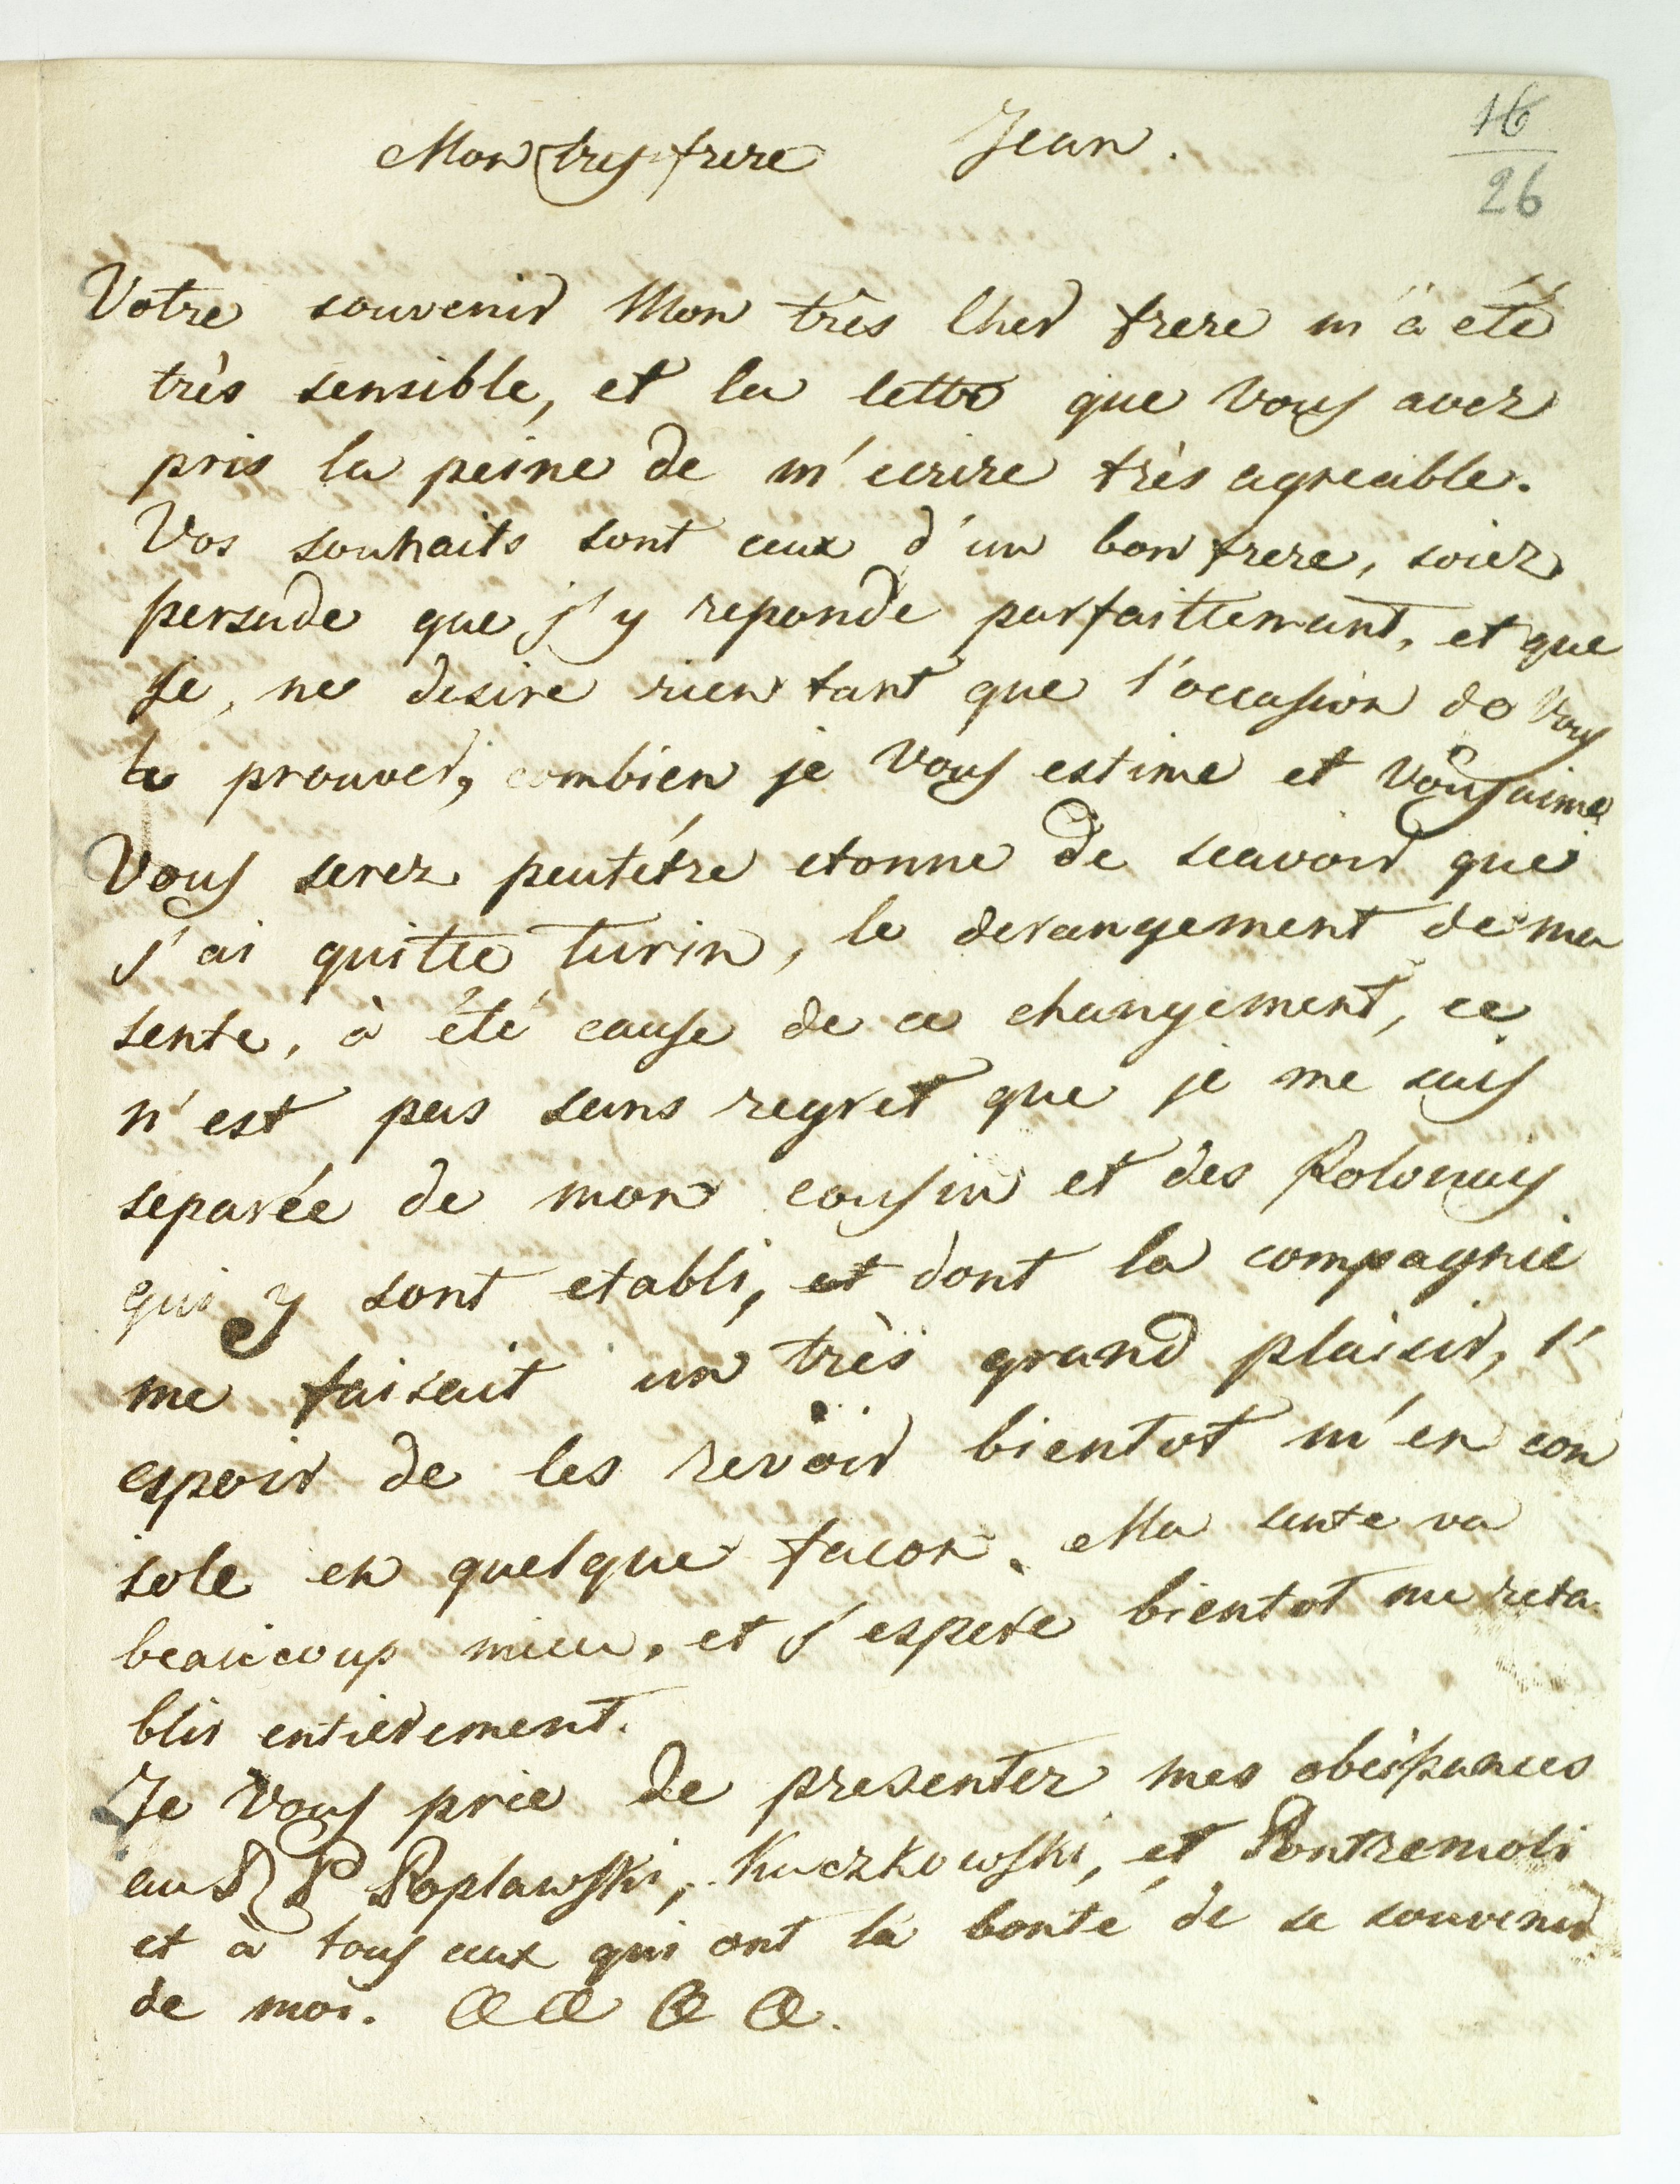 Mon tres frere Jean.
16
26
Votre souvenir Mon très Cher frere m'à été
très sensible, et la lettre que Vous avez
pris la peine de m'ecrire très agreable.
Vos souhaits sont ceux d'un bon frere, soiez
persude que j'y reponde parfaittemant, et que
je, ne desire rien tant que l'occasion de Vous
le prouver, combien je Vous estime et Vous aime
Vous serez peutétre etonne de scavoir que
j'ai quitte turin, le derangement de ma
sente, à été cause de ce changement, ce
n'est pas sans regret que je me suis
separée de mon cousin et des Polonais
qui y sont etabli, et dont la compagnie
me faisait un très grand plaisir, l'
espoir de les revoir bientot m'en con
sole en quelque facon. Ma sente va
beaucoup mieu, et j'espere bientot me reta
blir entierement.
Je Vous prie de presenter mes obeissances
au P Poplawski, Kuczkowski, et Pontremoli
et à tous ceux qui ont la bonté de se souvenir
de moi. &c &c &c &c.